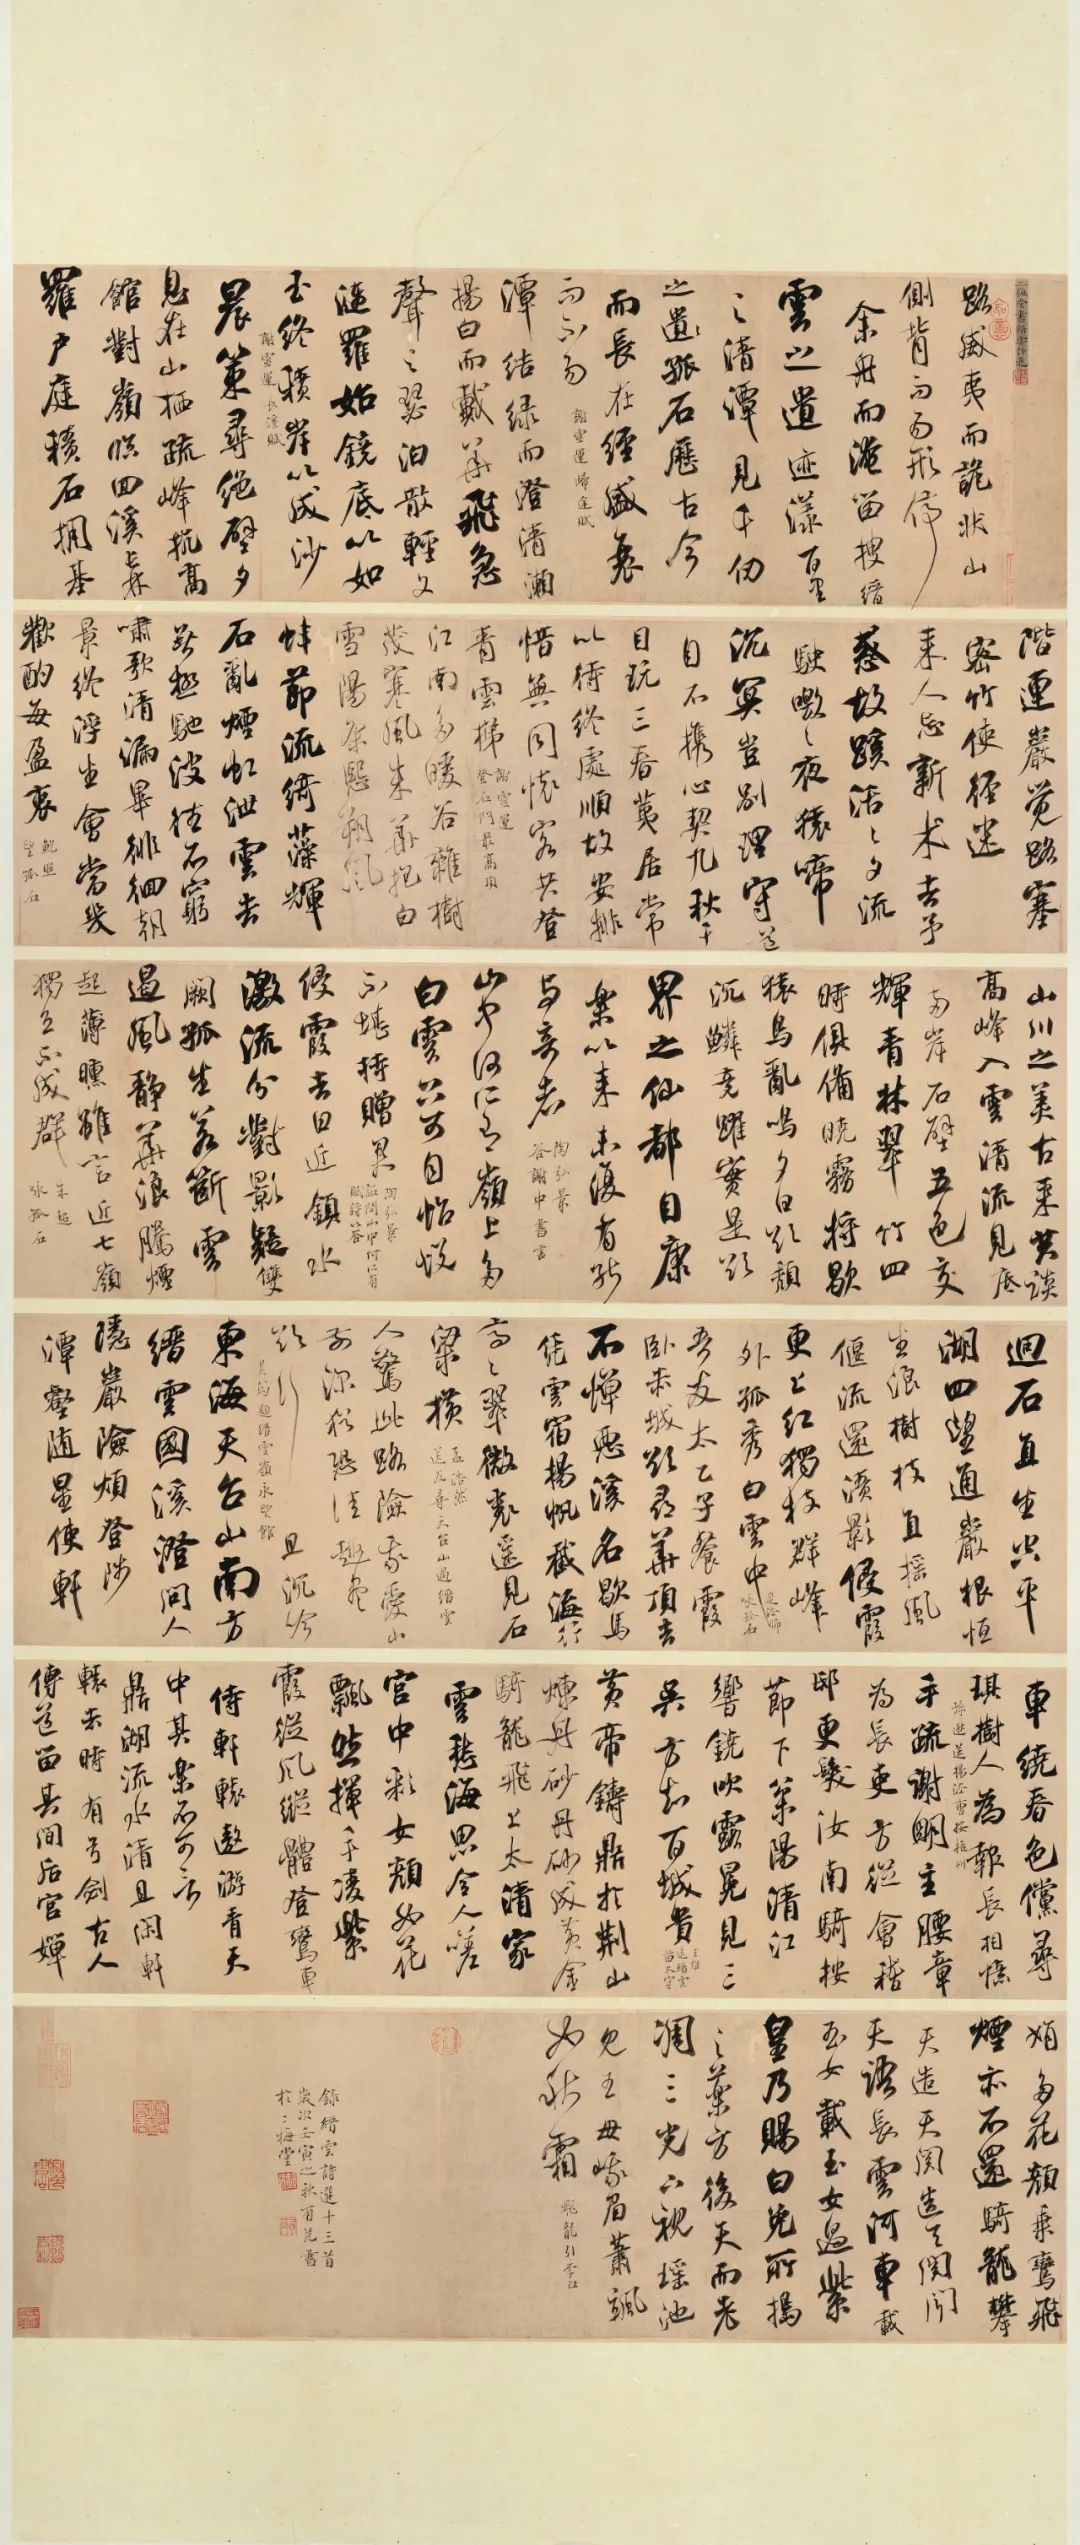 路威夷而詭状山
側背而易形停
余舟而淹留搜縉
雲之遺迹漾百里
之清潭見千仞
之遺孤石歷古今
而長在經盛衰
而不易
謝靈運歸途賦
潭結绿而澄清瀨
揚白而戴華飛急
聲之瑟汩散輕文
漣羅始鏡底以如
玉終積岸以成沙
謝靈運長溪賦
晨策尋绝壁夕
息在山栖疏峰抗高
館對嶺臨回溪長林
羅户庭積石拥基
階連巖觉路塞
密竹使径迷
来人忘新术去子
惑故蹊活活夕流
駛噭噭夜猿啼
沉冥豈别理守道
自不攜心契九秋干
目玩三春荑居常
以待終處順故安排
惜無同懷客共登
青雲梯
謝靈運
登石門最高頂
江南多暖谷雜樹
茂寒風朱華抱白
雪陽条熙朔風
蚌節流绮藻輝
石亂煙虹泄雲去
无極馳波往不窮
嘯歌清漏畢徘徊朝
景終浮生會當幾
歡酌每盈衷
鮑照
望孤石
山川之美古来共談
高峰入雲清流見底
兩岸石壁五色交
輝青林翠竹四
時俱備曉霧將歇
猿鸟亂鳴夕日欲頹
沉鱗竞躍實是欲
界之仙都自康
樂以来未復有能
與奇者
陶弘景
答謝中書書
山中何所有嶺上多
白雲只可自怡悦
不堪持贈君
陶弘景
詔問山中何所有
賦詩以答
侵霞去日近鎮水
激流分對影疑雙
闕孤生若斷雲
遏風静華浪騰煙
起薄曛雖言近七嶺
獨立不成群
朱超
咏孤石
迥石直生空平
湖四望通巖根恒
生浪樹枝直摇風
偃流還漬影侵霞
更上红獨枝群峰
外孤秀白雲中
咏孤石
吾友太乙子餐霞
卧赤城欲尋華頂去
不憚惡溪名歇馬
凭雲宿揚帆截海行
高高翠微裏遥見石
梁横
孟浩然
送尋天台山過縉雲
人驚此路險我愛山
前深猶恐佳趣盡
欲行且沉吟
題縉雲嶺永望館
東海天台山南方
縉雲國溪澄問人
隱巖險煩登陟
潭壑随星使軒
車繞春色儻尋
琪樹人為報長相憶
手疏謝明主腰章
為長吏方從會稽
邸更發汝南騎按
節下萊陽清江
響鐃吹露冕見三
吳方知百城貴
王維
送縉雲
苗太守
黄帝鑄鼎於荆山
煉丹砂丹砂成黄金
騎龍飛上太清家
雲愁海思令人嗟
宫中彩女颜如花
飄然揮手凌紫
霞從風縱體登鸞車
侍軒轅遨游青天
中其樂不可言
鼎湖流水清且闲軒
轅去時有弓劍古人
傳道留其間后宫嬋
娟多花颜乘鸞飛
煙亦不還騎龍攀
天造天關造天關闻
天語長雲河車載
玉女載玉女過紫
皇乃賜白兔所搗
之藥方後天而老
凋三光下視瑶池
見王母蛾眉蕭颯
如秋霜
飛龍引二首
錄縉雲詩選十三首
歲次壬寅之秋有記書
於三梅堂